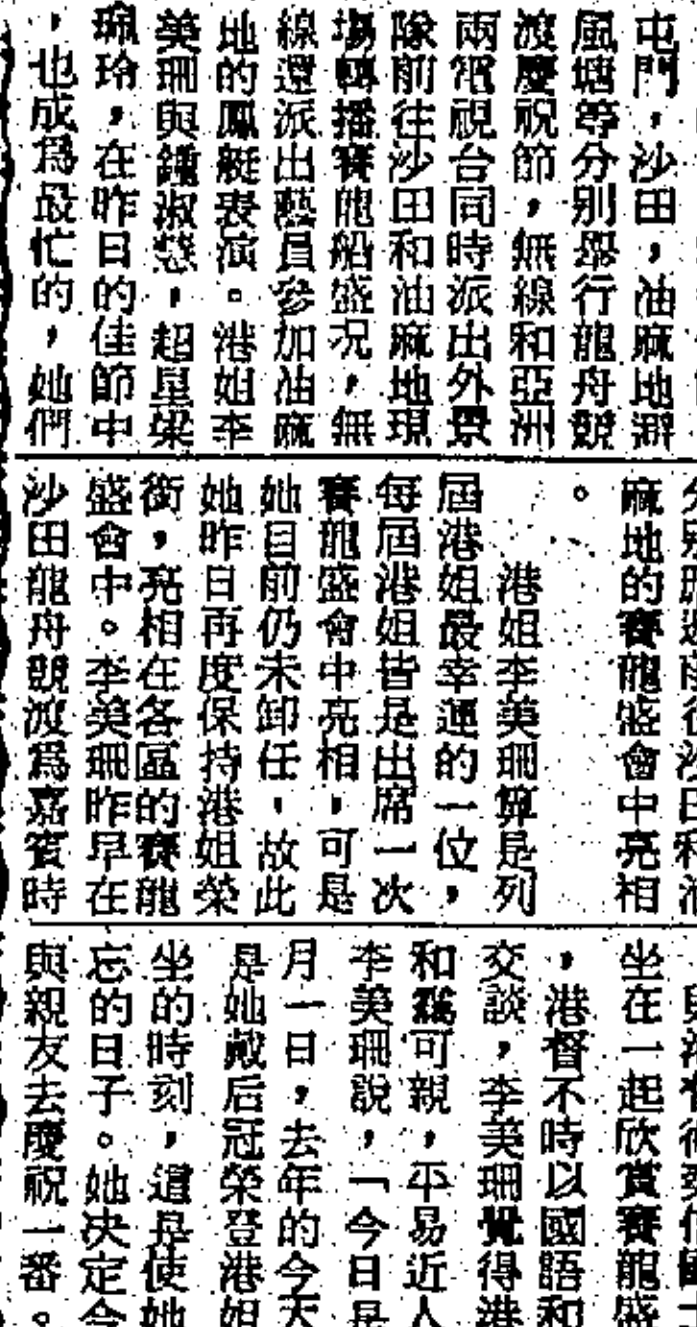 屯門,沙田,油麻地避
風塘等分別舉行龍舟競
渡慶祝節,無線和亞洲
兩電視台同時派出外景
隊前往沙田和油麻地現
場轉播賽龍船盛況,無
線還派出藝員參加油麻
地的鳳艇表演。港姐李
美珊與鍾淑慧,超星梁
珮玲,在昨日的佳節中
,也成爲最忙的,她們
麻地的賽龍盛會中亮相
。
港姐李美珊算是列
屆港姐最幸運的一位,
每屆港姐皆是出席一次
賽龍盛會中亮相,可是
她目前仍未卸任,故此
她昨日再度保持港姐榮
銜,亮相在各區的賽龍
盛會中。李美珊昨早在
沙田龍舟競渡爲嘉賓時
坐在一起欣賞賽龍盛
,港督不時以國語和
交談,李美珊覺得港
和靄可親,平易近人
李美珊說,「今日是
月一日,去年的今天
是她戴后冠榮登港姐
坐的時刻,這是使她
忘的日子。她決定今
與親友去慶祝一番。